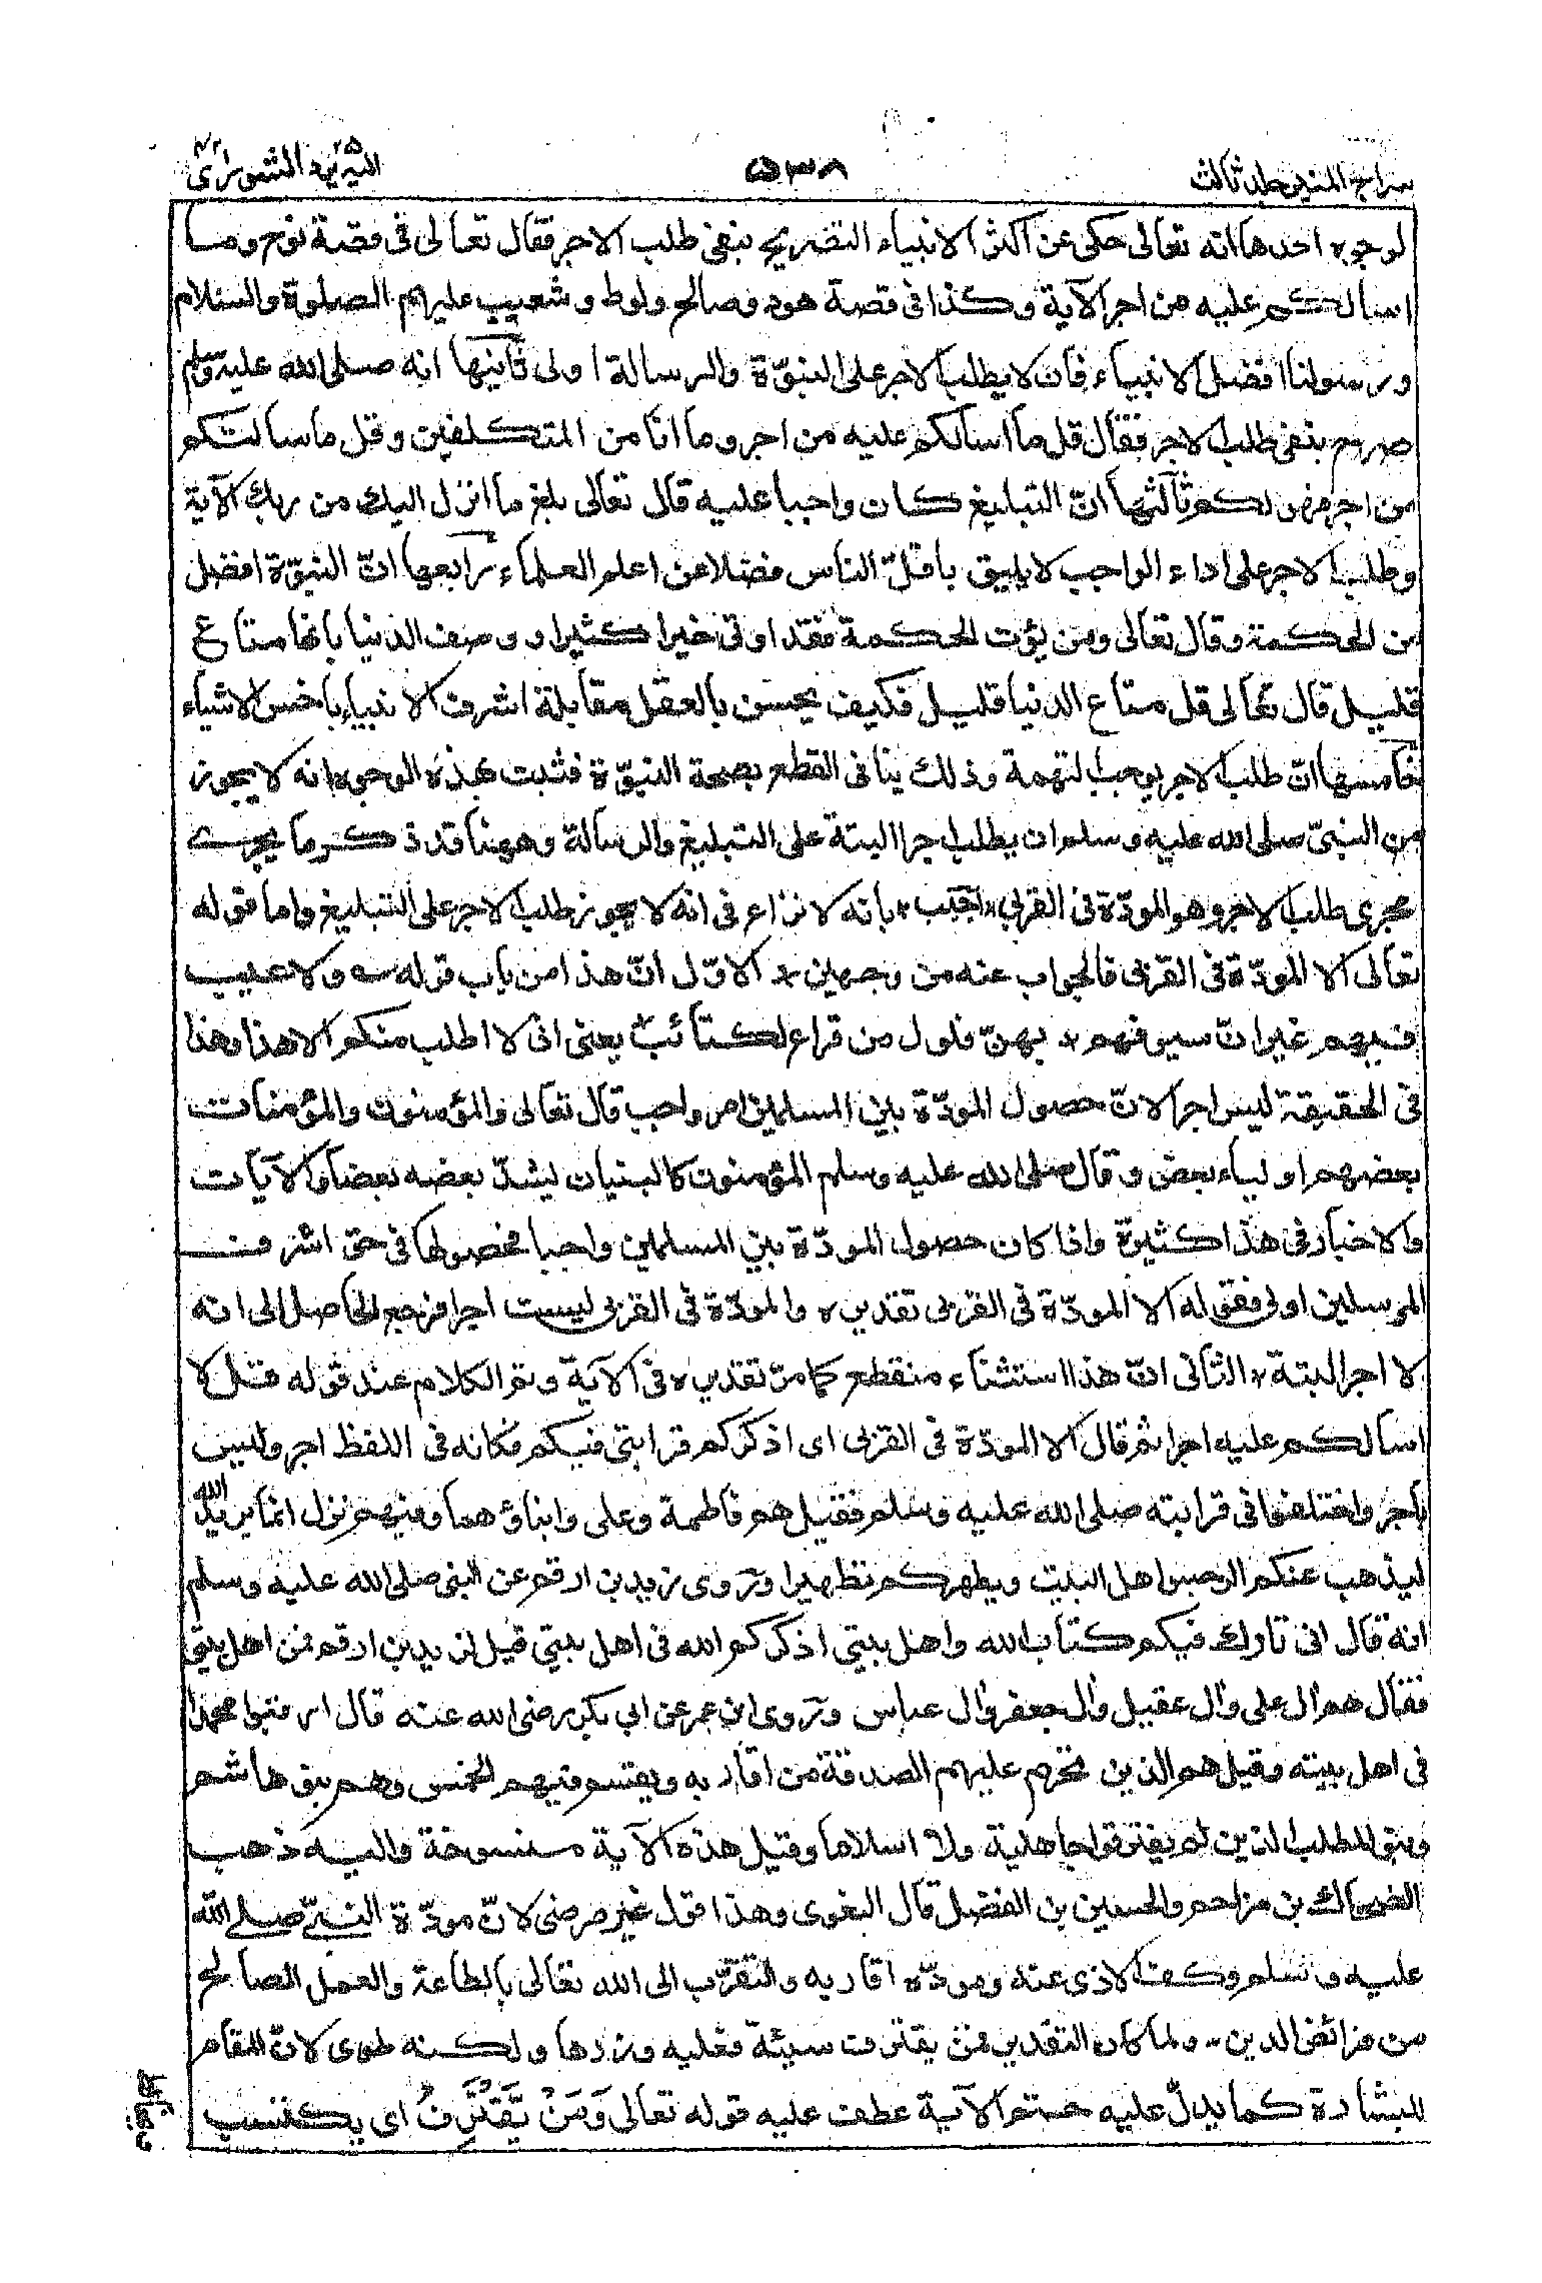 سراج المنير جلد ثالث
٥٣٨
اليه يرد ٢٥ الشورى ٤٢
لوجوه احدها انه تعالى حكى عن اكثر الانبياء التصريح بنفى طلب الاجر فقال تعالى فى قصة نوح وما
اسألكم عليه من اجر الآية وكذا فى قصة هود وصالح ولوط وشعيب عليهم الصلوة والسلام
ورسولنا افضل الانبياء فان لا يطلب الاجر على النبوّة والرسالة اولى ثانيها انه صلى الله عليه وسلم
صرح بنفى طلب الاجر فقال قل ما اسألكم عليه من اجر وما انا من المتكلفين وقل ما سألتكم
من اجر فهو لكم ثالثها انّ التبليغ كان واجبا عليه قال تعالى بلغ ما انزل اليك من ربك الآية
وطلب الاجر على اداء الواجب لا يليق باقلّ الناس فضلا عن اعلم العلماء رابعها انّ النبوّة افضل
من الحكمة وقال تعالى ومن يؤت الحكمة فقد اوتى خيرا كثيرا ووصف الدنيا بانها متاع
قليل قال تعالى قل متاع الدنيا قليل فكيف يحسن بالعقل مقابلة اشرف الانبياء باخس الاشياء
خامسها انّ طلب الاجر يوجب التهمة وذلك ينافى القطع بصحة النبوّة فثبت بهذه الوجوه انه لا يجوز
من النبىّ صلى الله عليه وسلم ان يطلب اجرا البتة على التبليغ والرسالة وههنا قد ذكر ما يجرى
مجرى طلب الاجر وهو المودّة فى القربى اجيب بانه لا نزاع فى انه لا يجوز طلب الاجر على التبليغ واما قوله
تعالى الا المودّة فى القربى فالجواب عنه من وجهين الاوّل انّ هذا من باب قوله ولا عيب
فيهم غير انّ سيوفهم بهنّ فلول من قراع الكتائب يعنى انى لا اطلب منكم الا هذا وهذا
فى الحقيقة ليس اجرا لانّ حصول المودّة بين المسلمين امر واجب قال تعالى والمؤمنون والمؤمنات
بعضهم اولياء بعض وقال صلى الله عليه وسلم المؤمنون كالبنيان يشدّ بعضه بعضا والآيات
والاخبار فى هذا كثيرة واذا كان حصول المودّة بين المسلمين واجبا فحصولها فى حق اشرف
المرسلين اولى فقوله الا المودّة فى القربى تقديره والمودّة فى القربى ليست اجرا فرجع الحاصل الى انه
لا اجر البتة الثانى انّ هذا استثناء منقطع كما مرّ تقديره فى الآية وتم الكلام عند قوله قل لا
اسألكم عليه اجرا ثم قال الا المودّة فى القربى اى اذكركم قرابتى فيكم فكانه فى اللفظ اجر وليس
باجر واختلفوا فى قرابته صلى الله عليه وسلم فقيل هم فاطمة وعلى وابناؤهما وفيهم نزل انما يريد الله
ليذهب عنكم الرجس اهل البيت ويطهركم تطهيرا وروى زيد بن ارقم عن النبى صلى الله عليه وسلم
انه قال انى تارك فيكم كتاب الله واهل بيتى اذكركم الله فى اهل بيتى قيل لزيد بن ارقم فمن اهل بيته
فقال هم آل على وآل عقيل وآل جعفر وآل عباس وروى ابن عمر عن ابى بكر رضى الله عنه قال ارقبوا محمدا
فى اهل بيته وقيل هم الذين تحرم عليهم الصدقة من اقاربه ويقتسم فيهم الخمس وهم بنو هاشم
وبنو المطلب الذين لم يفترقوا جاهلية ولا اسلاما وقيل هذه الآية منسوخة واليه ذهب
الضحاك بن مزاحم والحسين بن الفضل قال البغوى وهذا قول غير مرضى لانّ مودّة النبىّ صلى الله
عليه وسلم وكف الاذى عنه ومودّة اقاربه والتقرّب الى الله تعالى بالطاعة والعمل الصالح
من فرائض الدين ولما كان التقدير فمن يقترف سيئة فعليه وزرها ولكنه طوى لانّ المقام
للبشارة كما يدلّ عليه ختم الآية عطف عليه قوله تعالى وَمَنْ يَّقْتَرِفْ اى يكتسب